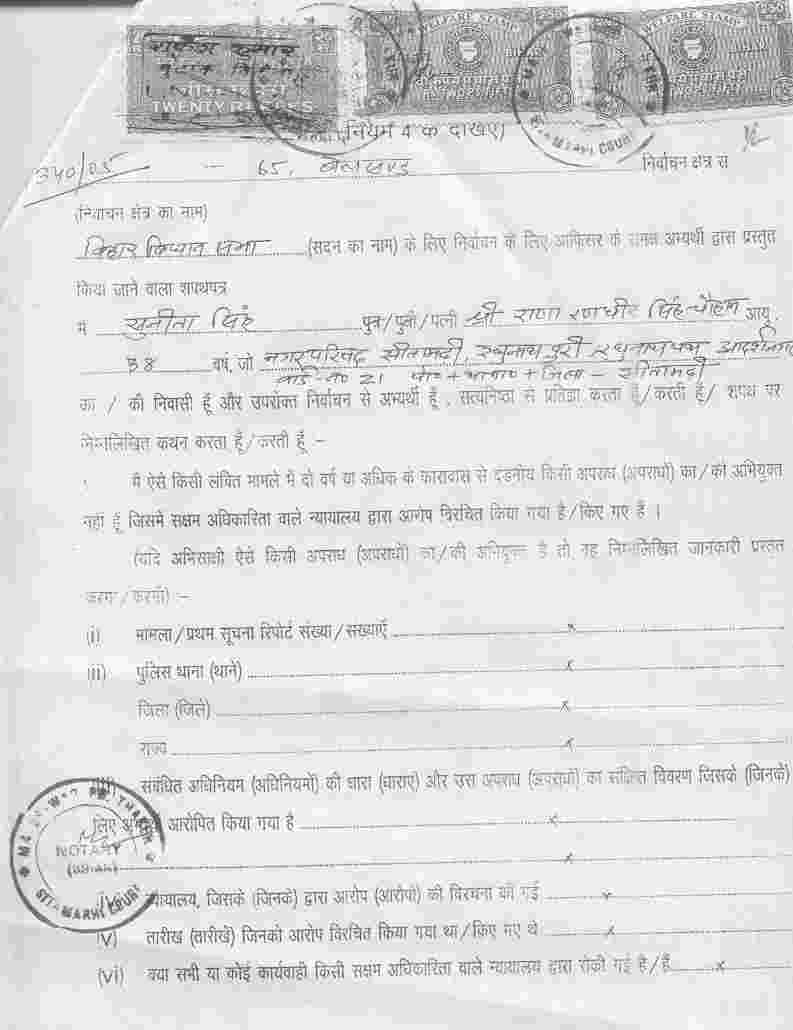 WELFARE STAMP
WELFARE STAMP
BIHAR
TWENTY RUPEES
SITAMARHI COURT
(नियम 4 क देखिए)
340/05
65, बेलसण्ड
निर्वाचन क्षेत्र स
(निर्वाचन क्षेत्र का नाम)
बिहार विधान सभा (सदन का नाम) के लिए निर्वाचन के लिए आफिसर के समक्ष अभ्यर्थी द्वारा प्रस्तुत
किया जाने वाला शपथपत्र
मैं सुनीता सिंह पुत्र/पुत्री/पत्नी श्री राणा रणधीर सिंह चौहान आयु
38 वर्ष, जो नगर परिषद सीतामढ़ी, रघुनाथ पुरी आदर्शनगर
वार्ड-न० 21 पो० + थाना + जिला - सीतामढ़ी
का / की निवासी हूँ और उपरोक्त निर्वाचन से अभ्यर्थी हूँ , सत्यनिष्ठा से प्रतिज्ञा करता हूँ/करती हूँ/ शपथ पर
निम्नलिखित कथन करता हूँ/करती हूँ :-
मै ऐसे किसी लंबित मामले में दो वर्ष या अधिक के कारावास से दंडनीय किसी अपराध (अपराधों) का/की अभियुक्त
नहीं हूँ जिसमे सक्षम अधिकारिता वाले न्यायालय द्वारा आरोप विरचित किया गया है/किए गए हैं ।
(यदि अभिसाक्षी ऐसे किसी अपराध (अपराधों) का/की अभियुक्त है तो वह निम्नलिखित जानकारी प्रस्तुत
करेगा/करेगी) :-
(i) मामला/प्रथम सूचना रिपोर्ट संख्या/संख्याएँ x
(ii) पुलिस थाना (थाने) x
जिला (जिले) x
राज्य x
संबंधित अधिनियम (अधिनियमों) की धारा (धाराएं) और उस अपराध (अपराधों) का संक्षिप्त विवरण जिसके (जिनके)
लिए आरोपित किया गया है x
x
NOTARY
SITAMARHI COURT
न्यायालय, जिसके (जिनके) द्वारा आरोप (आरोपों) की विरचना की गई x
(v) तारीख (तारीखें) जिनको आरोप विरचित किया गया था/किए गए थे x
(vi) क्या सभी या कोई कार्यवाही किसी सक्षम अधिकारिता वाले न्यायालय द्वारा रोकी गई है/हैं x